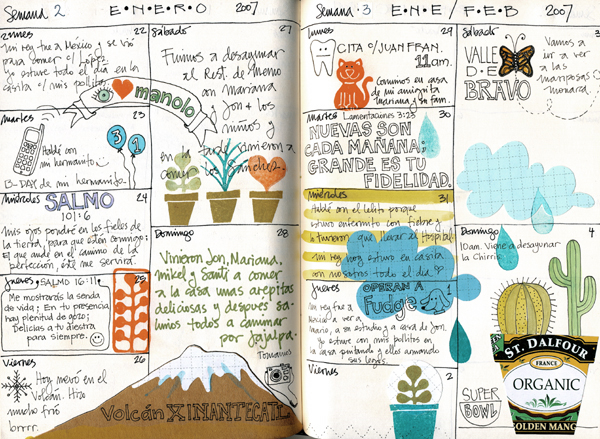 Semana 2 ENERO 2007
Lunes 22
mi rey fue a México y se vió
para comer c/ López.
Yo estuve todo el día en la
casita c/ mis pollitos
manolo
martes 23
31
Hablé con
mi hermanito
B-DAY de mi hermanito.
miércoles 24
SALMO
101:6
mis ojos pondré en los fieles de
la tierra, para que estén conmigo;
El que ande en el camino de la
perfección, este me servirá.
Jueves SALMO 16:11 25
Me mostrarás la senda
de vida; En tu presencia
hay plenitud de gozo;
Delicias a tu diestra
para siempre.
Viernes 26
Hoy nevó en el
Volcán. Hizo
mucho frío
brrrr.
Sábado 27
Fuimos a desayunar
al Rest. de Memo
con Mariana
y Jon + los
niños y
en la tarde vinieron a
comer los Sanchez.
Domingo 28
Vinieron Jon, Mariana,
mikel y Santi a comer
a la casa unas arepitas
deliciosas y después sa-
limos todos a caminar
por Jajalpa.
Tomamos
Volcán XINANTECATL
Semana 3 ENE/FEB 2007
Lunes 29
CITA c/ JUAN FRAN.
11am.
Comimos en casa
de mi amiguita
mariana y su fam.
martes Lamentaciones 3:23 30
NUEVAS SON
CADA MAÑANA;
GRANDE ES TU
FIDELIDAD.
miércoles 31
Hablé con el Lelito porque
estuvo enfermito con fiebre y
lo tuvieron que llevar al Hospital.
mi rey hoy estuvo en casita
con nosotros todo el día
Jueves
OPERAN A
Fudge
mi rey fue a
a ver a
Mario, a su estudio y a casa de Jon.
Yo estuve con mis pollitos en
la casa pintando y ellos armando
sus legos.
Viernes 2
Sábado 3
VALLE
DE
BRAVO
Vamos a
ir a ver
a las
mariposas
monarca
Domingo 4
10am. Viene a desayunar
la Chirris.
SUPER
BOWL
ST. DALFOUR
FRANCE
ORGANIC
GOLDEN MANG